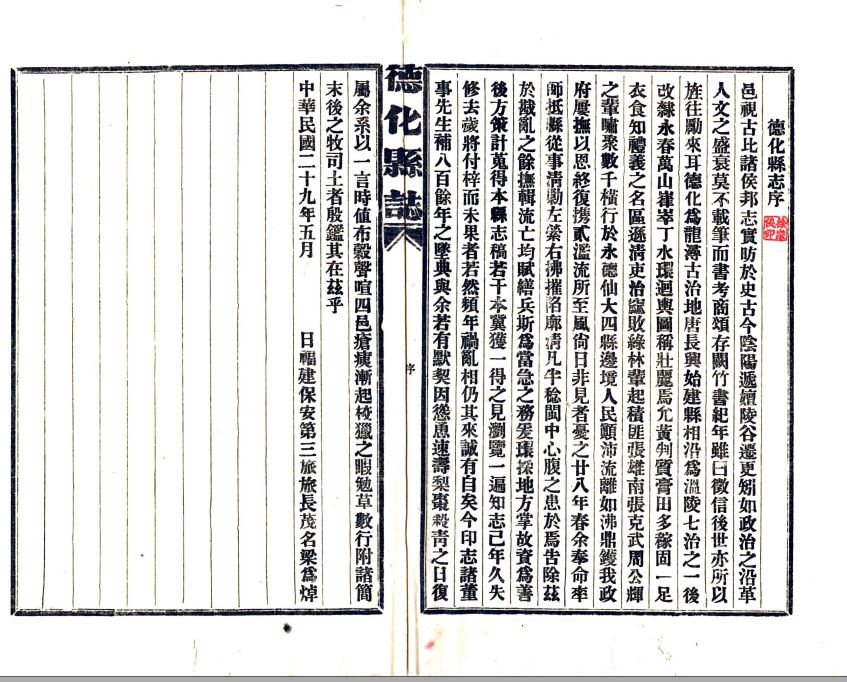 德化縣志序
邑視古比諸侯邦志實昉於史古今陰陽遞嬗陵谷遷更矧如政治之沿革
人文之盛衰莫不載筆而書考商頌存闕竹書紀年雖曰徵信後世亦所以
旌往勵來耳德化為龍潯古治地唐長興始建縣相沿為溫陵七治之一後
改隸永春萬山嶐崒丁水環迴輿圖稱壯麗焉允黃判質膏田多稼固一足
衣食知禮義之名區遜清吏治窳敗綠林輩起積匪張雄南張克武周公輝
之輩嘯眾數千橫行於永德仙大四縣邊境人民顚沛流離如沸鼎鑊我政
府屢撫以恩終復携貳濫流所至風尙日非見者憂之廿八年春余奉命率
師抵縣從事清勦左縈右拂摧陷廓清凡半稔閩中心腹之患於焉告除茲
於戡亂之餘撫輯流亡均賦繕兵斯為當急之務爰環採地方掌故資為善
後方策計蒐得本縣志稿若干本冀獲一得之見瀏覽一遍知志已年久失
修去歲將付梓而未果者若然頻年禍亂相仍其來誠有自矣今印志諸董
事先生補八百餘年之墜典與余若有默契因慫恿速壽梨棗殺青之日復
德化縣誌
序
屬余系以一言時值布穀聲喧四邑瘡痍漸起校獵之暇勉草數行附諸簡
末後之牧司土者殷鑑其在茲乎
中華民國二十九年五月　　日福建保安第三旅旅長茂名梁為焯